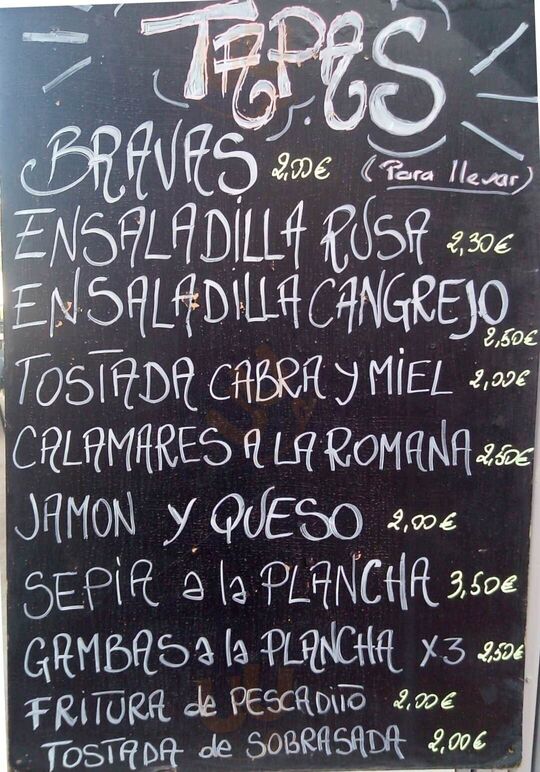 TAPAS
BRAVAS 2,00€ (Para llevar)
ENSALADILLA RUSA 2,30€
ENSALADILLA CANGREJO
2,50€
TOSTADA CABRA Y MIEL 2,00€
CALAMARES A LA ROMANA 2,50€
JAMON Y QUESO 2,00€
SEPIA a la PLANCHA 3,50€
GAMBAS a la PLANCHA X3 2,50€
FRITURA de PESCADITO 2,00€
TOSTADA de SOBRASADA 2,00€